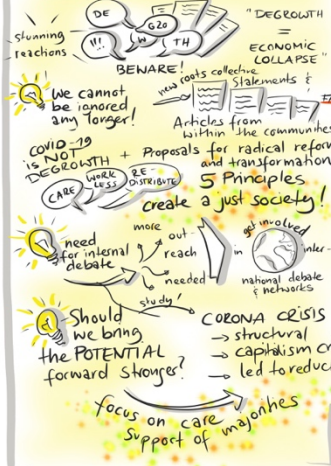 DE G20
!!! W TH
stunning
reactions
BEWARE!
"DEGROWTH
=
ECONOMIC
COLLAPSE"
We cannot
be ignored
any longer!
new roots collective
Statements &
Articles from
within the communities
COVID-19
is NOT
DEGROWTH
+ Proposals for radical refor
and transformation
CARE WORK LESS RE-DISTRIBUTE
5 Principles
create a just society!
need
for internal
debate
more
out-
reach
needed
in
get involved
inter-
national debate
& networks
study!
Should
we bring
the POTENTIAL
forward stronger?
CORONA CRISIS
→ structural
→ capitalism cr
→ led to reduc
focus on care
support of majorities